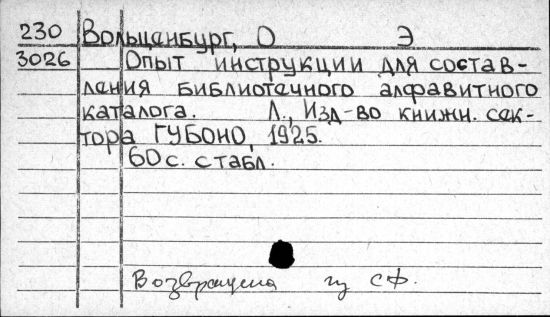 230 Вольценбург, О Э
3026 Опыт инструкции для состав-
ления библиотечного алфавитного
каталога. Л., Изд-во книжн. сек-
тора ГУБОНО, 1925.
60 с. с табл.
Возвращена из СФ.